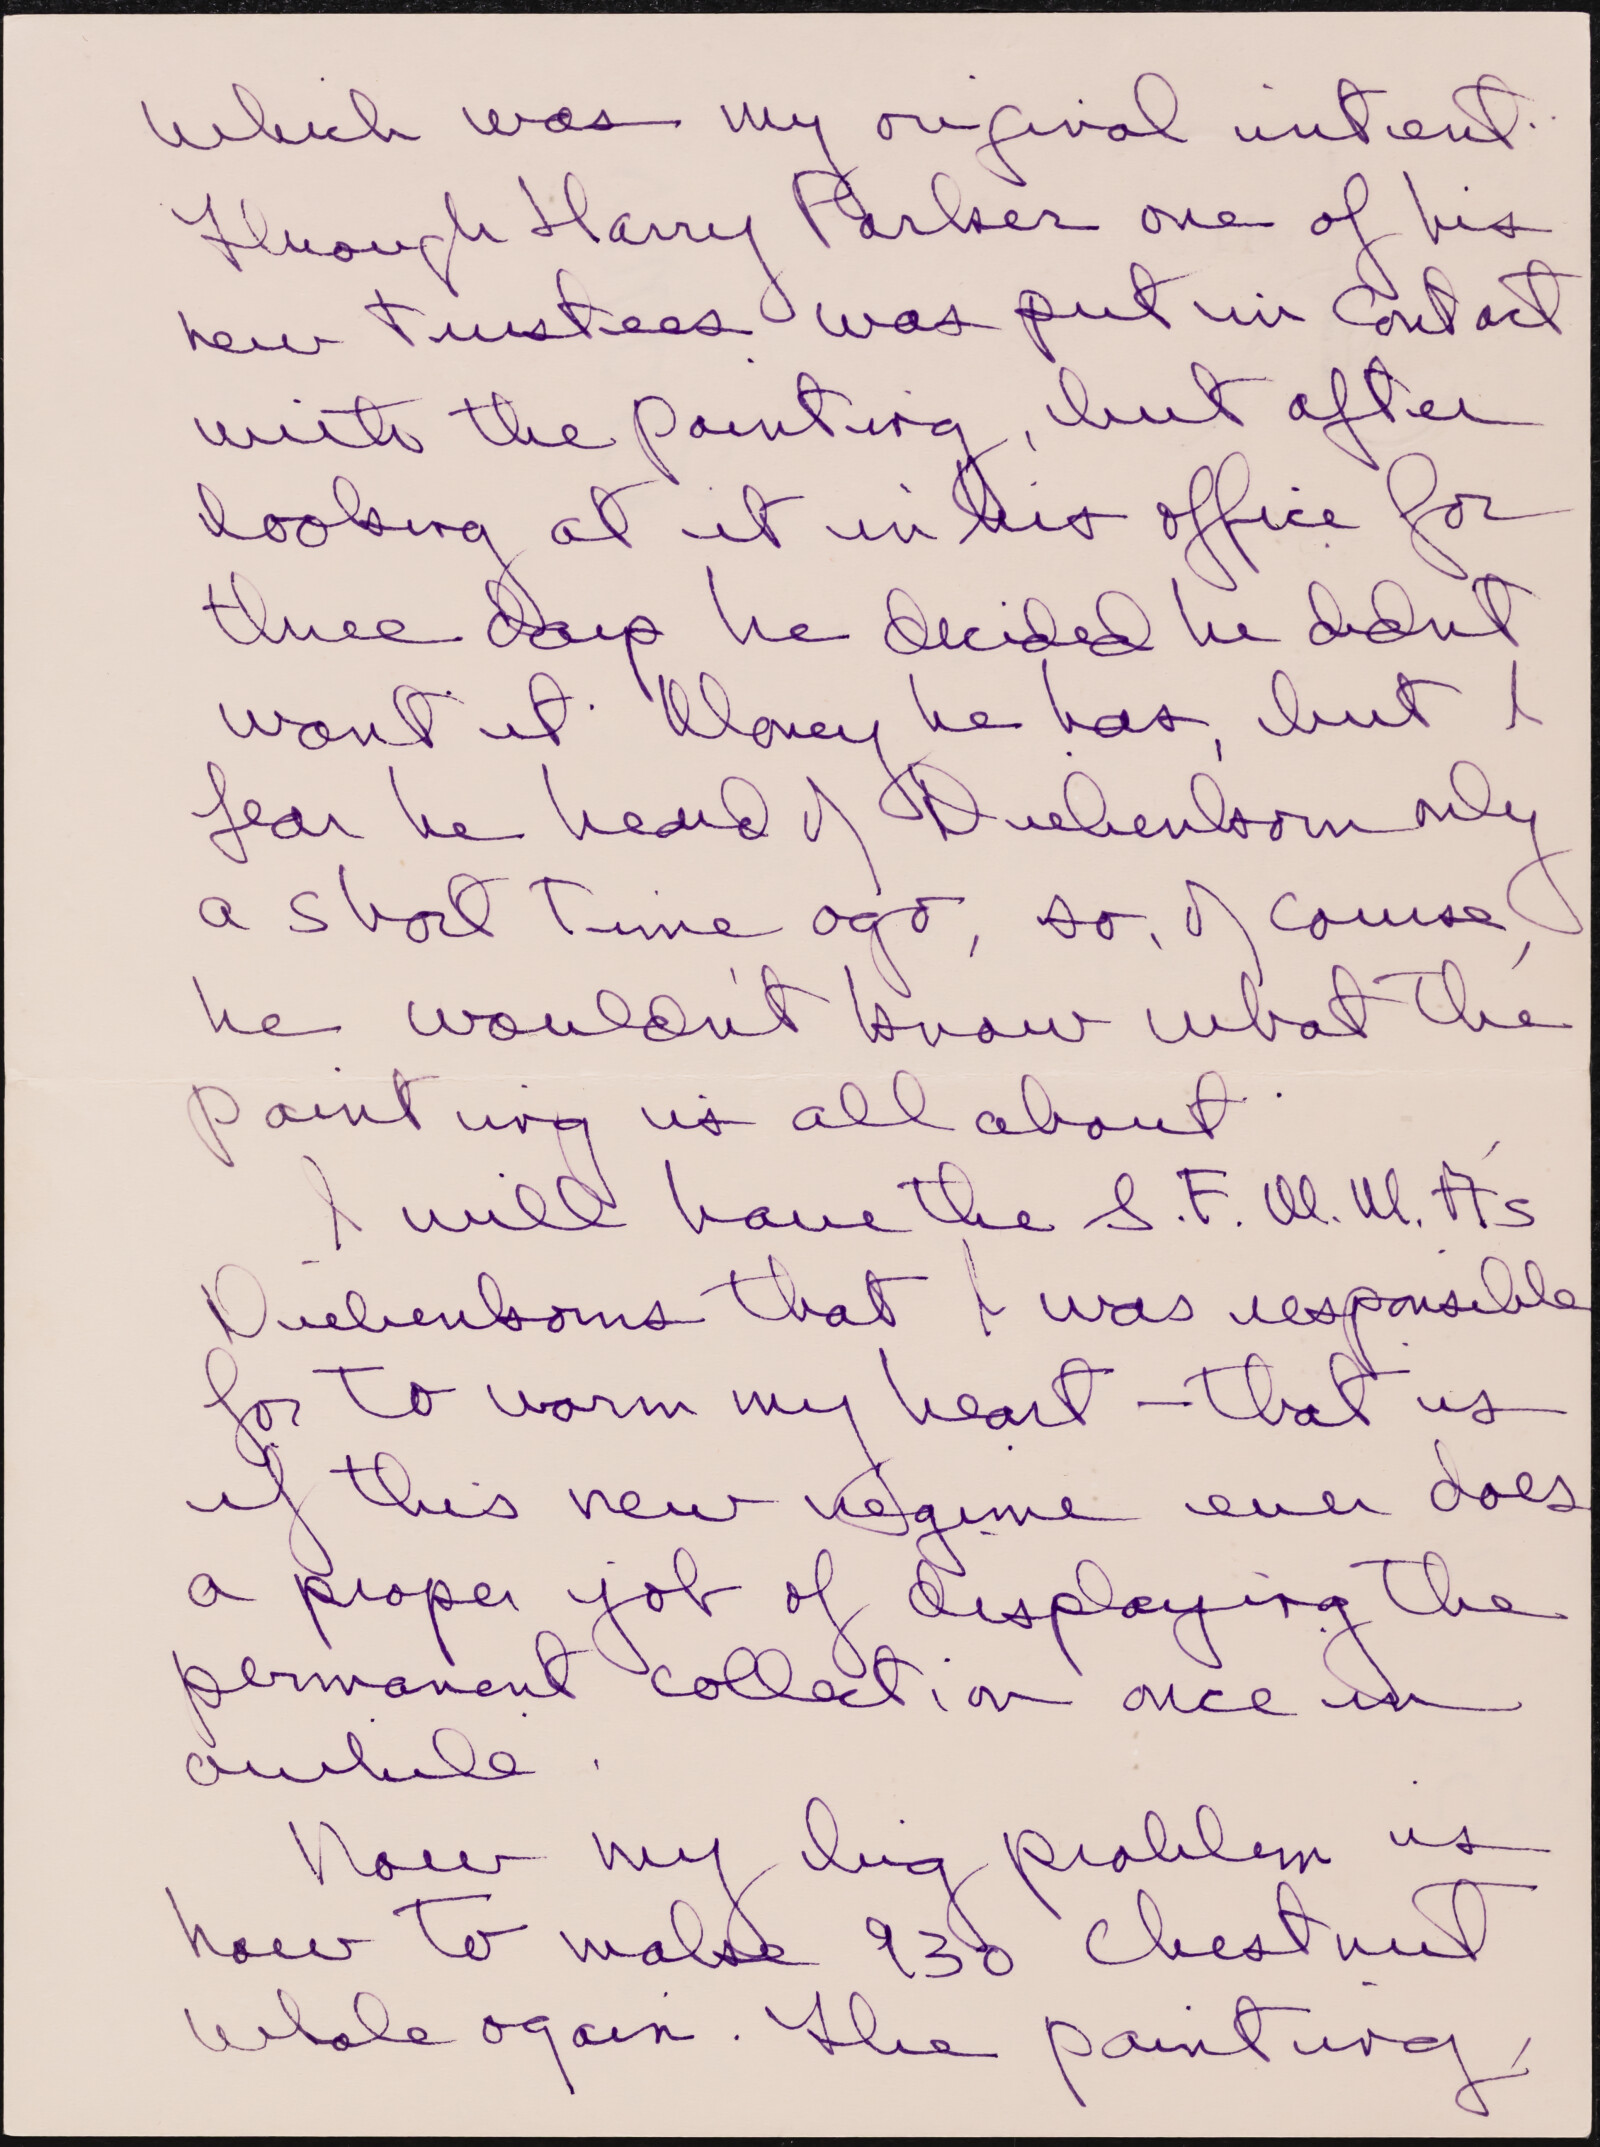 which was my original intent.
Through Harry Parker one of his
new trustees was put in contact
with the painting, but after
looking at it in his office for
three days he decided he didn't
want it. Money he has, but I
fear he heard of Diebenkorn only
a short time ago, so, of course,
he wouldn't know what the
painting is all about.
I will have the S.F.M.M.A's
Diebenkorns that I was responsible
for to warm my heart – that is
if this new regime ever does
a proper job of displaying the
permanent collection once in
awhile.
Now my big problem is
how to make 930 Chestnut
whole again. The painting,